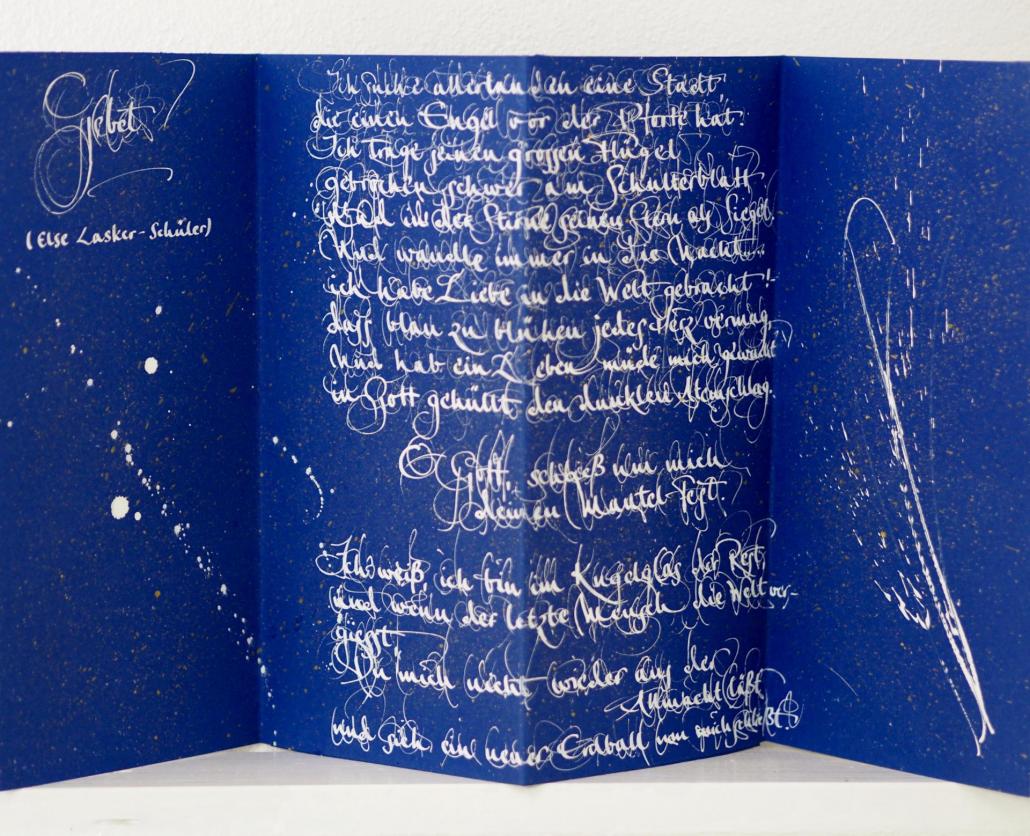 Gebet
(Else Lasker-Schüler)
Ich suche allerlanden eine Stadt,
die einen Engel vor der Pforte hat.
Ich trage seinen grossen Flügel
gebrochen schwer am Schulterblatt
und in der Stirne seinen Stern als Siegel.
Und wandle immer in die Nacht...
ich habe Liebe in die Welt gebracht! -
dass blau zu blühen jedes Herz vermag,
Und hab ein Leben müde mich gewacht
in Gott gehüllt den dunklen Atemschlag.
O Gott, schließ um mich
deinen Mantel fest.
Ich weiß, ich bin im Kugelglas der Rest,
und wenn der letzte Mensch die Welt ver-
giesst,
Du mich nicht wieder aus der
Allmacht läßt,
und sich ein neuer Erdball um mich schließt